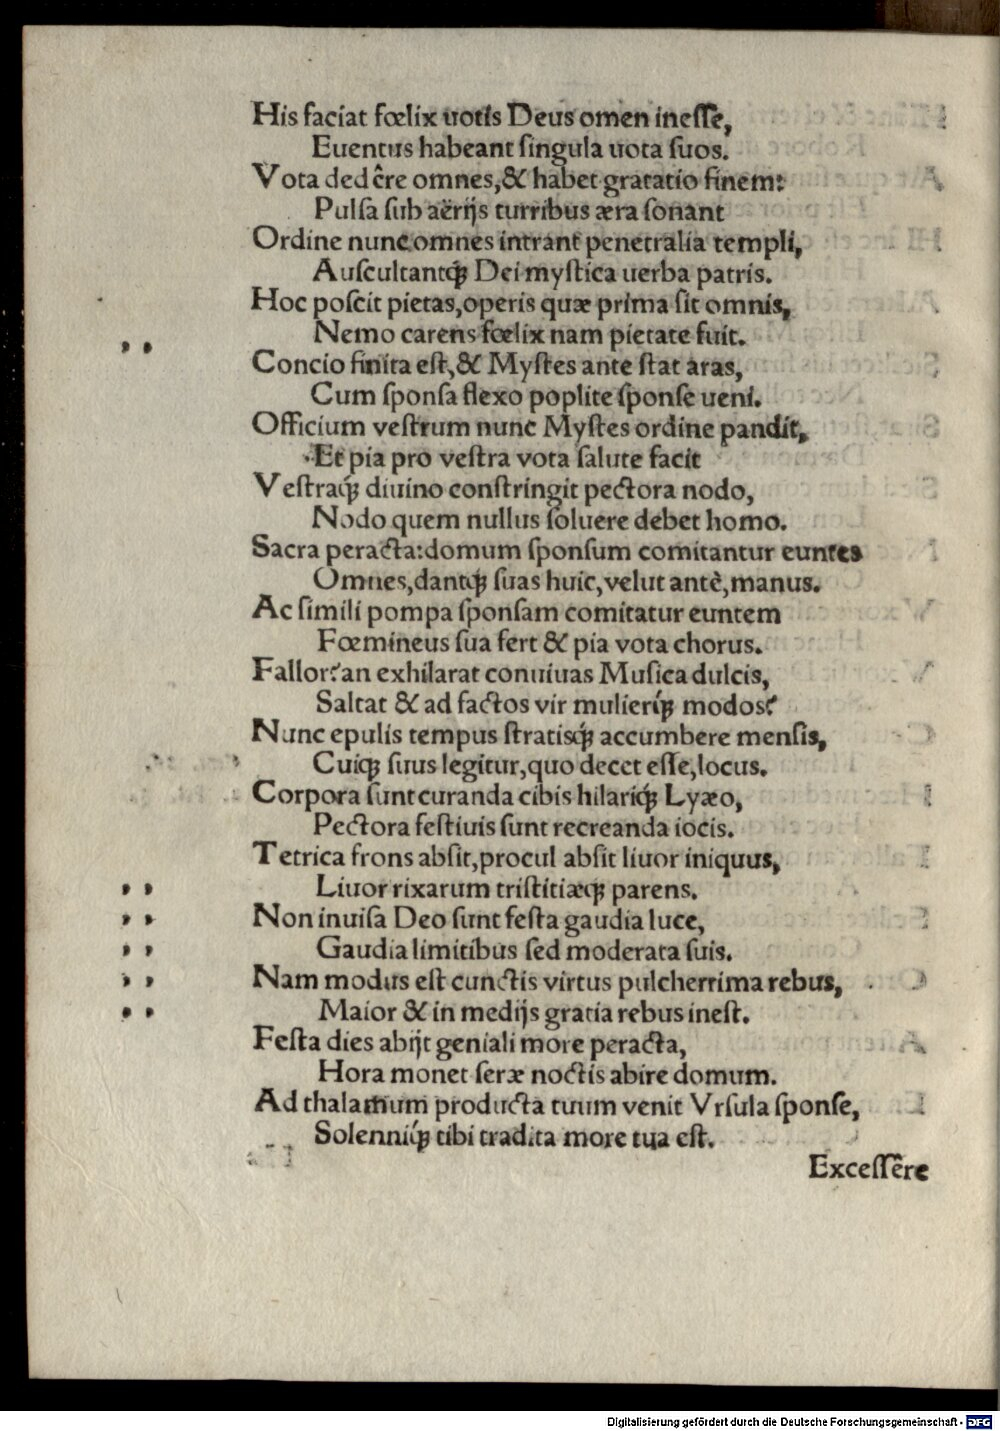 His faciat fœlix uotis Deus omen inesse,
Euentus habeant singula uota suos.
Vota dedêre omnes, & habet gratatio finem:
Pulsa sub aërijs turribus æra sonant
Ordine nunc omnes intrant penetralia templi,
Auscultantq́; Dei mystica uerba patris.
Hoc poscit pietas, operis quæ prima sit omnis,
Nemo carens fœlix nam pietate fuit.
Concio finita est, & Mystes ante stat aras,
Cum sponsa flexo poplite sponse ueni.
Officium vestrum nunc Mystes ordine pandit,
Et pia pro vestra vota salute facit
Vestraq́; diuino constringit pectora nodo,
Nodo quem nullus soluere debet homo.
Sacra peracta: domum sponsum comitantur euntes
Omnes, dantq́; suas huic, velut antè, manus.
Ac simili pompa sponsam comitatur euntem
Fœmineus sua fert & pia vota chorus.
Fallor? an exhilarat conuiuas Musica dulcis,
Saltat & ad factos vir mulierq́; modos?
Nunc epulis tempus stratisq́; accumbere mensis,
Cuiq; suus legitur, quo decet esse, locus.
Corpora sunt curanda cibis hilariq́; Lyæo,
Pectora festiuis sunt recreanda iocis.
Tetrica frons absit, procul absit liuor iniquus,
,, Liuor rixarum tristitiæq́; parens.
,, Non inuisa Deo sunt festa gaudia luce,
,, Gaudia limitibus sed moderata suis.
,, Nam modus est cunctis virtus pulcherrima rebus,
,, Maior & in medijs gratia rebus inest.
Festa dies abijt geniali more peracta,
Hora monet seræ noctis abire domum.
Ad thalamum producta tuum venit Vrsula sponse,
Solenniq́; tibi tradita more tua est.
Excessêre
Digitalisierung gefördert durch die Deutsche Forschungsgemeinschaft - DFG